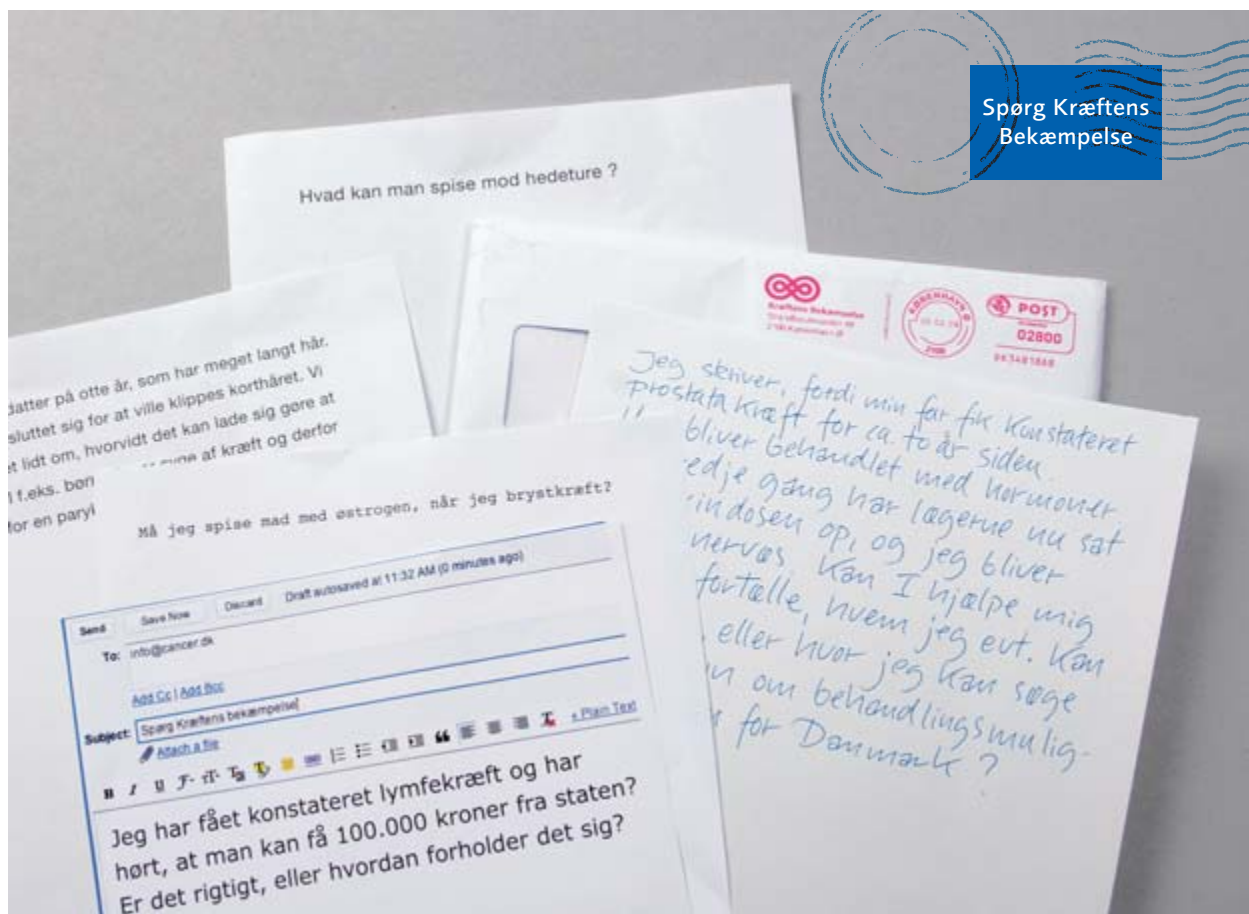 Spørg Kræftens
Bekæmpelse
Hvad kan man spise mod hedeture ?
Kræftens Bekæmpelse
KØBENHAVN Ø
POST
02800
datter på otte år, som har meget langt hår.
sluttet sig for at ville klippes korthåret. Vi
et lidt om, hvorvidt det kan lade sig gøre at
f.eks. børn
af kræft og derfor
for en paryk
Jeg skriver, fordi min far fik konstateret
prostatakræft for ca. to år siden.
bliver behandlet med hormoner
edje gang har lægerne nu sat
indosen op, og jeg bliver
nervøs. Kan I hjælpe mig
fortælle, hvem jeg evt. kan
eller hvor jeg kan søge
om behandlingsmulig-
for Danmark ?
Må jeg spise mad med østrogen, når jeg brystkræft?
Send Save Now Discard Draft autosaved at 11:32 AM (0 minutes ago)
To: info@cancer.dk
Add Cc | Add Bcc
Subject: Spørg Kræftens bekæmpelse
Attach a file
« Plain Text
Jeg har fået konstateret lymfekræft og har
hørt, at man kan få 100.000 kroner fra staten?
Er det rigtigt, eller hvordan forholder det sig?